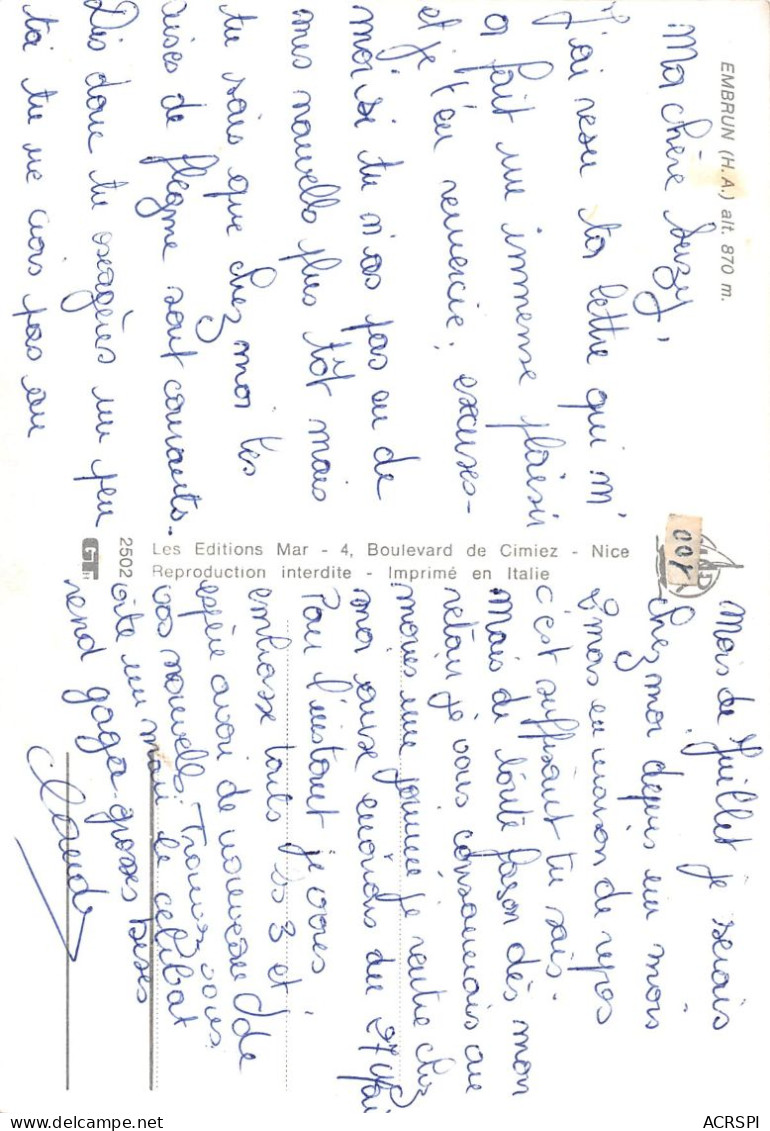 EMBRUN (H.A.) alt. 870 m.
Ma chère Suzy,
J'ai resu ta lettre qui m'
a fait un immense plaisir
et je t'en remercie, excuses-
moi si tu n'as pas eu de
mes nouvelles plus tôt mais
tu sais que chez moi les
crises de flegme sont courantes.
Dis donc tu exagères un peu
toi tu ne crois pas au
Mois de Juillet je serais
chez moi depuis un mois
2 mois en maison de repos
c'est suffisant tu sais.
Mais de toute façon dès mon
retour je vous consacrerais au
moins une journée je rentre chez
moi aux environs du 27 Mai
Pour l'instant je vous
embrasse touts les 3 et
espère avoir de nouveau de
vos nouvelles. Trouvez vous
vite un mari le celibat
rend gaga grosses bises
Claude
001
Les Editions Mar - 4, Boulevard de Cimiez - Nice
Reproduction interdite - Imprimé en Italie
2502
ACRSPI